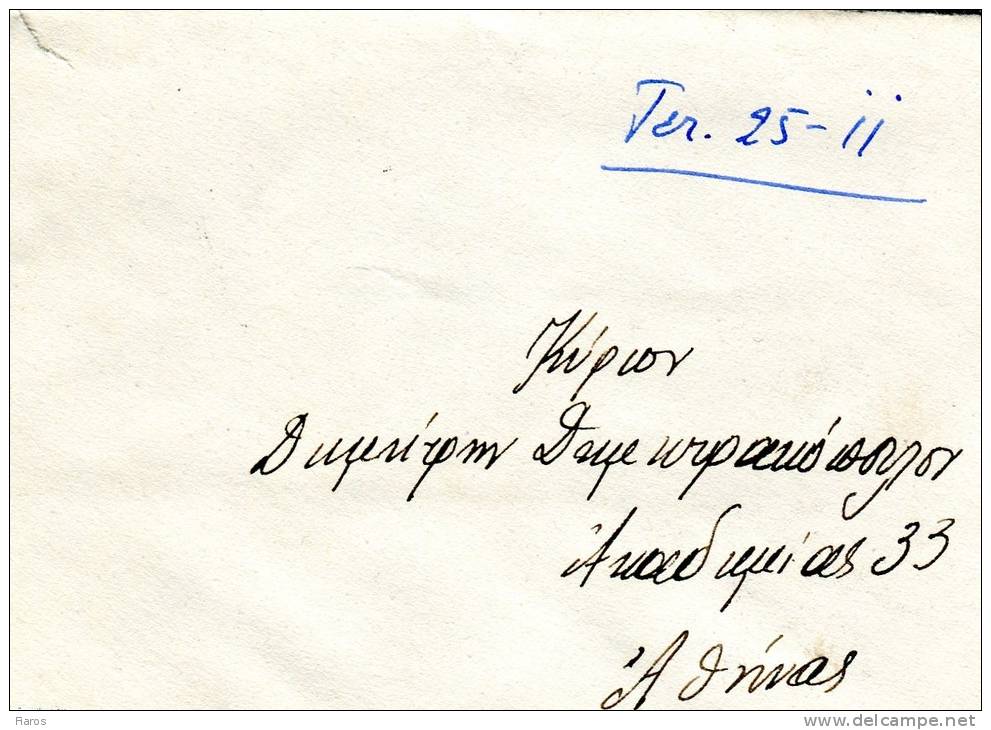 Τετ. 25-11
Κύριον
Δημήτρην Δημητρακόπουλον
Ἀκαδημίας 33
Ἀθήνας
Raros
www.delcampe.net